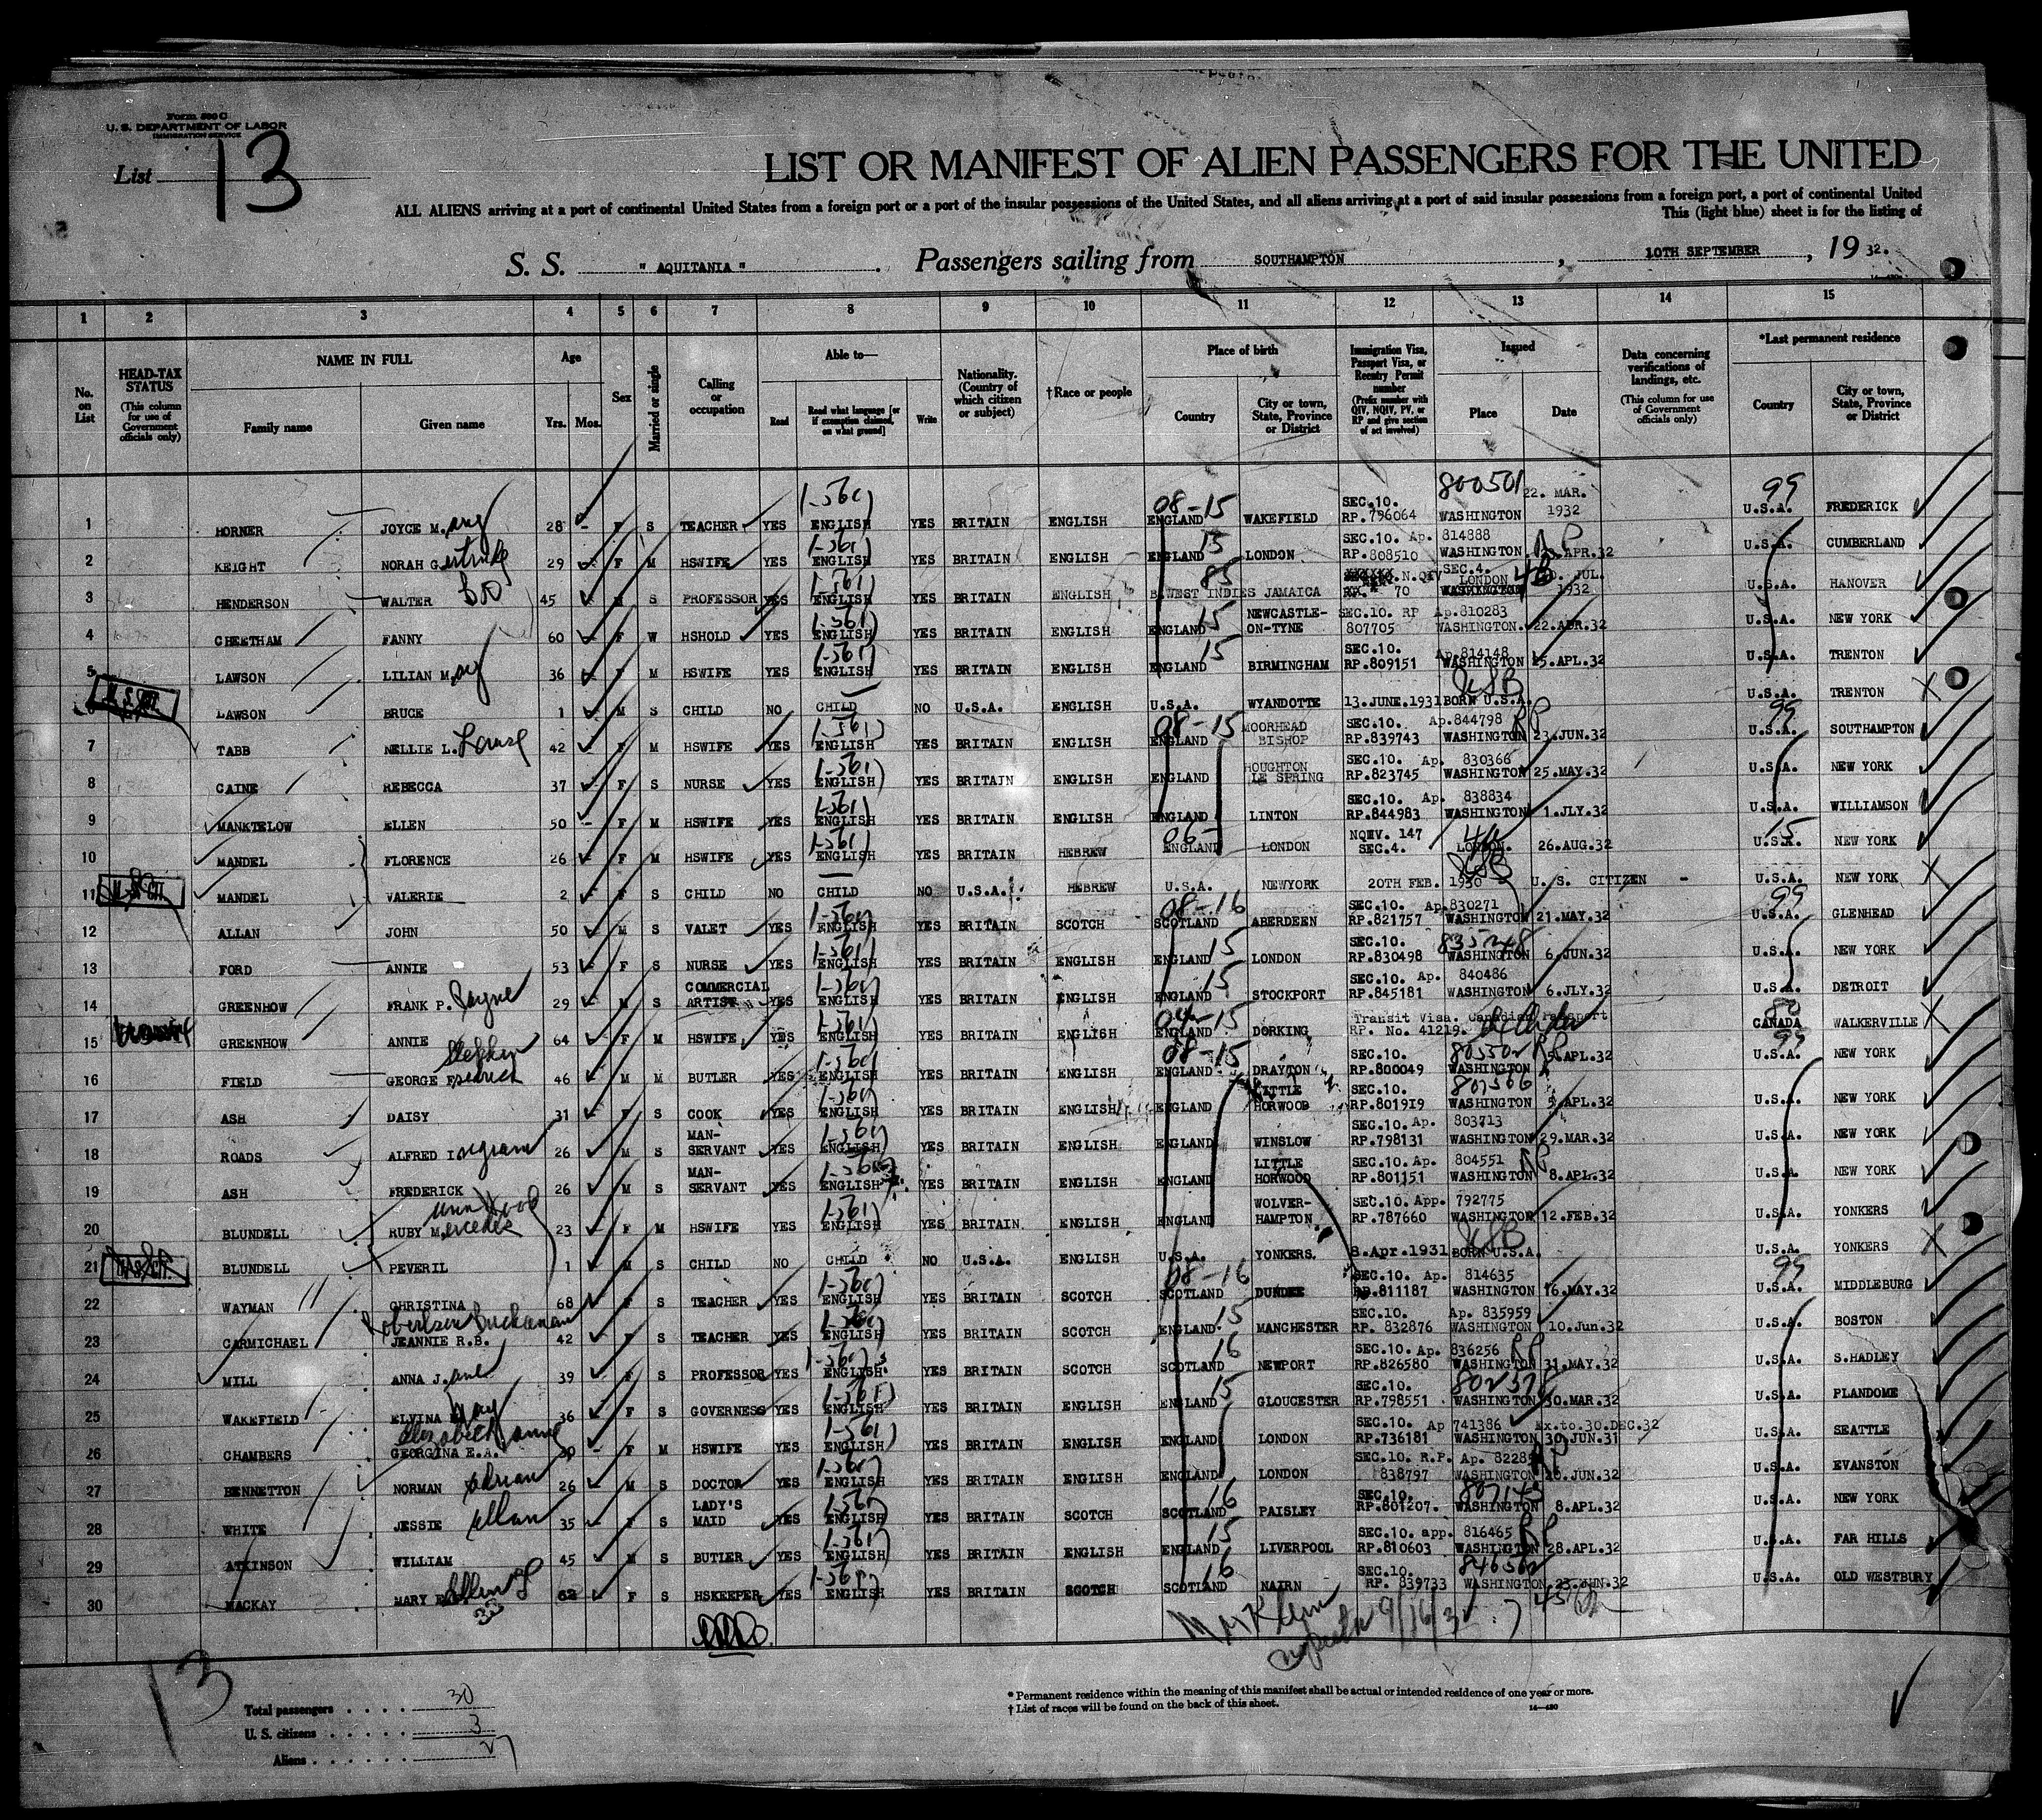 Form 500 C
U. S. DEPARTMENT OF LABOR
IMMIGRATION SERVICE
List 13
LIST OR MANIFEST OF ALIEN PASSENGERS FOR THE UNITED
ALL ALIENS arriving at a port of continental United States from a foreign port or a part of the insular possessions of the United States, and all aliens arriving at a port of said insular possessions from a foreign port, a port of continental United
This (light blue) sheet is for the listing of
S. S. "AQUITANIA". Passengers sailing from SOUTHAMPTON, 10TH SEPTEMBER, 19 32.
1 2 3 4 5 6 7 8 9 10 11 12 13 14 15
No. on List
HEAD-TAX STATUS (This column for use of Government officials only)
NAME IN FULL
Family name
Given name
Age
Yrs. Mos.
Sex
Married or single
Calling or occupation
Able to—
Read
Read what language [or if exemption claimed, on what ground]
Write
Nationality. (Country of which citizen or subject)
†Race or people
Place of birth
Country
City or town, State, Province or District
Immigration Visa, Passport Visa, or Reentry Permit number (Prefix number with QIV, NQIV, PV, or RP and give section of act involved)
Issued
Place
Date
Data concerning verifications of landings, etc. (This column for use of Government officials only)
*Last permanent residence
Country
City or town, State, Province or District
1 HORNER JOYCE M.ary 28 - F S TEACHER YES ENGLISH YES BRITAIN ENGLISH 08-15 ENGLAND WAKEFIELD SEC.10. RP.796064 800501 WASHINGTON 22. MAR. 1932 99 U.S.A. FREDERICK
2 KEIGHT NORAH G.ertrude 29 F M HSWIFE YES ENGLISH YES BRITAIN ENGLISH 15 ENGLAND LONDON SEC.10. Ap. 814888 RP.808510 WASHINGTON APR.32 U.S.A. CUMBERLAND
3 HENDERSON WALTER 45 M S PROFESSOR YES ENGLISH YES BRITAIN ENGLISH 85 B.WEST INDIES JAMAICA N.QIV 70 SEC.4. LONDON JUL. 1932 U.S.A. HANOVER
4 CHEETHAM FANNY 60 F W HSHOLD YES ENGLISH YES BRITAIN ENGLISH 15 ENGLAND NEWCASTLE-ON-TYNE SEC.10. RP Ap.810283 807705 WASHINGTON. 22.APR.32 U.S.A. NEW YORK
5 LAWSON LILIAN M.ay 36 F M HSWIFE YES ENGLISH YES BRITAIN ENGLISH 15 ENGLAND BIRMINGHAM SEC.10. Ap.814148 RP.809151 WASHINGTON 25.APL.32 U.S.A. TRENTON
6 LAWSON BRUCE 1 M S CHILD NO CHILD NO U.S.A. ENGLISH U.S.A. WYANDOTTE 13.JUNE.1931 BORN U.S.A. U.S.A. TRENTON
7 TABB NELLIE L.ouise 42 F M HSWIFE YES ENGLISH YES BRITAIN ENGLISH 08-15 ENGLAND MOORHEAD BISHOP SEC.10. Ap.844798 RP RP.839743 WASHINGTON 23.JUN.32 99 U.S.A. SOUTHAMPTON
8 CAINE REBECCA 37 F S NURSE YES ENGLISH YES BRITAIN ENGLISH ENGLAND HOUGHTON LE SPRING SEC.10. Ap. 830366 RP.823745 WASHINGTON 25.MAY.32 U.S.A. NEW YORK
9 MANKTELOW ELLEN 50 - F M HSWIFE YES ENGLISH YES BRITAIN ENGLISH ENGLAND LINTON SEC.10. Ap. 838834 RP.844983 WASHINGTON 1.JLY.32 U.S.A. WILLIAMSON
10 MANDEL FLORENCE 26 F M HSWIFE YES ENGLISH YES BRITAIN HEBREW 06- ENGLAND LONDON NQIV. 147 SEC.4. LONDON. 26.AUG.32 15 U.S.A. NEW YORK
11 MANDEL VALERIE 2 F S CHILD NO CHILD NO U.S.A. HEBREW U.S.A. NEWYORK 20TH FEB. 1930 U.S. CITIZEN - U.S.A. NEW YORK
12 ALLAN JOHN 50 M S VALET YES ENGLISH YES BRITAIN SCOTCH 08-16 SCOTLAND ABERDEEN SEC.10. Ap.830271 RP.821757 WASHINGTON 21.MAY.32 99 U.S.A. GLENHEAD
13 FORD ANNIE 53 F S NURSE YES ENGLISH YES BRITAIN ENGLISH 15 ENGLAND LONDON SEC.10. 835248 RP.830498 WASHINGTON 6.JUN.32 U.S.A. NEW YORK
14 GREENHOW FRANK P. Payne 29 M S COMMERCIAL ARTIST YES ENGLISH YES BRITAIN ENGLISH 15 ENGLAND STOCKPORT SEC.10. Ap. 840486 RP.845181 WASHINGTON 6.JLY.32 U.S.A. DETROIT
15 GREENHOW ANNIE 64 F M HSWIFE YES ENGLISH YES BRITAIN ENGLISH 04-15 ENGLAND DORKING Transit Visa. Canadian Passport RP. No. 41219. 80 CANADA WALKERVILLE
16 FIELD GEORGE Stephen F.rederick 46 M M BUTLER YES ENGLISH YES BRITAIN ENGLISH 08-15 ENGLAND DRAYTON SEC.10. 803502 RP RP.800049 WASHINGTON 5.APL.32 99 U.S.A. NEW YORK
17 ASH DAISY 31 F S COOK YES ENGLISH YES BRITAIN ENGLISH ENGLAND LITTLE HORWOOD SEC.10. 803566 RP.801919 WASHINGTON 5.APL.32 U.S.A. NEW YORK
18 ROADS ALFRED I.ngram 26 M S MAN-SERVANT YES ENGLISH YES BRITAIN ENGLISH ENGLAND WINSLOW SEC.10. Ap. 803713 RP.798131 WASHINGTON 29.MAR.32 U.S.A. NEW YORK
19 ASH FREDERICK 26 M S MAN-SERVANT YES ENGLISH YES BRITAIN ENGLISH ENGLAND LITTLE HORWOOD SEC.10. Ap. 804551 RP RP.801151 WASHINGTON 8.APL.32 U.S.A. NEW YORK
20 BLUNDELL RUBY M.ercedes 23 F M HSWIFE YES ENGLISH YES BRITAIN ENGLISH ENGLAND WOLVER-HAMPTON SEC.10. App. 792775 RP.787660 WASHINGTON 12.FEB.32 U.S.A. YONKERS
21 BLUNDELL PEVERIL 1 M S CHILD NO CHILD NO U.S.A. ENGLISH U.S.A. YONKERS. 8.Apr.1931 BORN U.S.A. U.S.A. YONKERS
22 WAYMAN CHRISTINA 68 F S TEACHER YES ENGLISH YES BRITAIN SCOTCH 08-16 SCOTLAND DUNDEE SEC.10. Ap. 814635 RP.811187 WASHINGTON 16.MAY.32 99 U.S.A. MIDDLEBURG
23 CARMICHAEL Robertson Buchanan JEANNIE R.B. 42 F S TEACHER YES ENGLISH YES BRITAIN SCOTCH 15 ENGLAND. MANCHESTER SEC.10. Ap. 835959 RP. 832876 WASHINGTON 10.Jun.32 U.S.A. BOSTON
24 MILL ANNA J.ane 39 F S PROFESSOR YES ENGLISH YES BRITAIN SCOTCH 16 SCOTLAND NEWPORT SEC.10. Ap. 836256 RP RP.826580 WASHINGTON 31.MAY.32 U.S.A. S.HADLEY
25 WAKEFIELD ELVINA May 36 F S GOVERNESS YES ENGLISH YES BRITAIN ENGLISH 15 ENGLAND GLOUCESTER SEC.10. RP.798551 WASHINGTON 30.MAR.32 U.S.A. PLANDOME
26 CHAMBERS Elizabeth Anne GEORGINA E.A. 39 - F M HSWIFE YES ENGLISH YES BRITAIN ENGLISH ENGLAND LONDON SEC.10. Ap 741386 Ex.to.30.DEC.32 RP.736181 WASHINGTON 30.JUN.31 U.S.A. SEATTLE
27 BENNETTON NORMAN Adrian 26 M S DOCTOR YES ENGLISH YES BRITAIN ENGLISH ENGLAND LONDON SEC.10. R.P. Ap. 838797 WASHINGTON JUN.32 U.S.A. EVANSTON
28 WHITE JESSIE Allan 35 F S LADY'S MAID YES ENGLISH YES BRITAIN SCOTCH 16 SCOTLAND PAISLEY SEC.10. 807143 RP.801207. WASHINGTON 8.APL.32 U.S.A. NEW YORK
29 ATKINSON WILLIAM 45 M S BUTLER YES ENGLISH YES BRITAIN ENGLISH 15 ENGLAND LIVERPOOL SEC.10. app. 816465 RP RP.810603 WASHINGTON 28.APL.32 U.S.A. FAR HILLS
30 MACKAY MARY 33 F S HSKEEPER YES ENGLISH YES BRITAIN SCOTCH 16 SCOTLAND NAIRN SEC.10. RP. 839733 WASHINGTON 23.JUN.32 U.S.A. OLD WESTBURY
9/16/32
13
Total passengers . . . . 30
U. S. citizens . . . . . 3
Aliens . . . . . . 27
* Permanent residence within the meaning of this manifest shall be actual or intended residence of one year or more.
† List of races will be found on the back of this sheet.